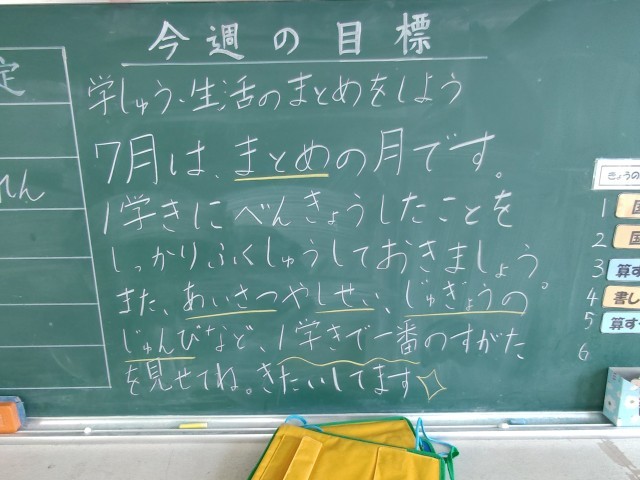 今週の目標
学しゅう・生活のまとめをしよう
7月は、まとめの月です。
1学きにべんきょうしたことを
しっかりふくしゅうしておきましょう。
また、あいさつやしせい、じゅぎょうの
じゅんびなど、1学きで一番のすがた
を見せてね。きたいしてます
定
れん
きょうの
1 国
2 国
3 算す
4 書し
5 算す
6